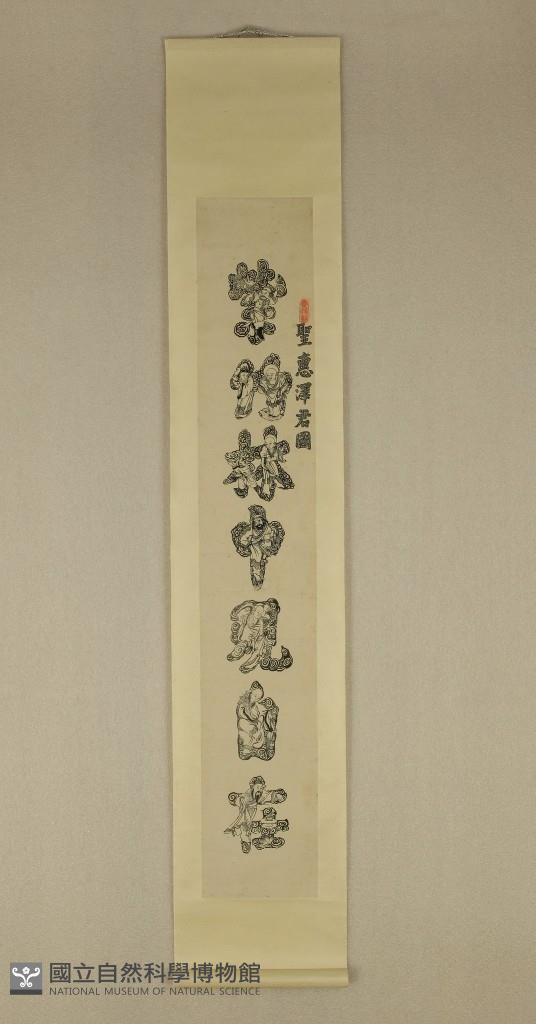 聖惠澤君國
紫竹林中現自在
國立自然科學博物館
NATIONAL MUSEUM OF NATURAL SCIENCE